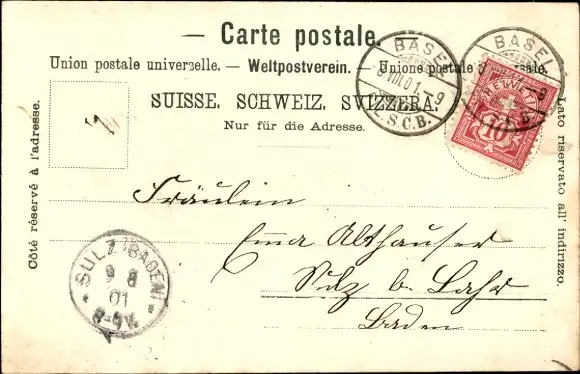 — Carte postale. —
Union postale universelle. — Weltpostverein. — Unione postale universale.
SUISSE. SCHWEIZ. SVIZZERA.
Nur für die Adresse.
Côté réservé à l'adresse.
Lato riservato all' indirizzo.
BASEL
9 VIII 01 – 9
S.C.B.
BASEL
– 9
HELVETIA
10
Fräulein
Emma Althauser
Sulz b. Lahr
Baden
SULZ (BADEN)
9 8
01